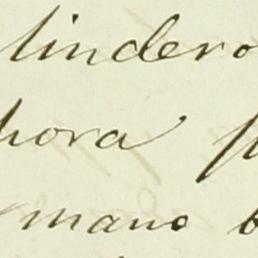 lindero
hora
mano